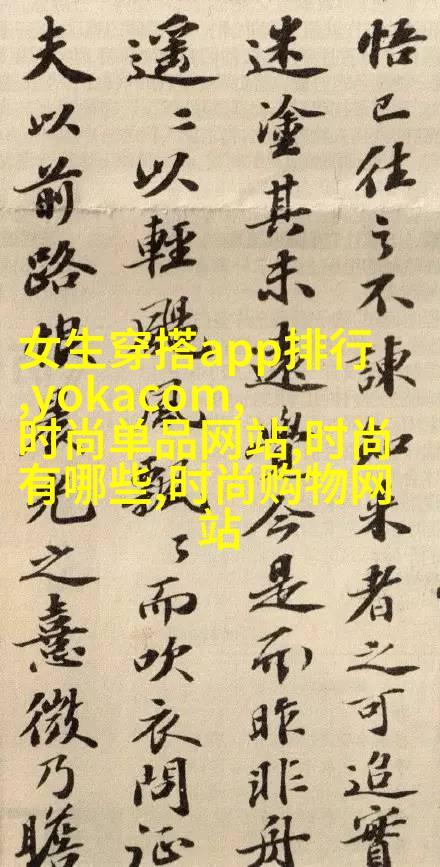 悟已往之不諫知来者之可追實
迷塗其未遠覺今是而昨非舟
遥々以輕颺風飄々而吹衣問征
夫以前路恨光之熹微乃瞻
女生穿搭app排行
,yokacom,
时尚单品网站,时尚
有哪些,时尚购物网
站